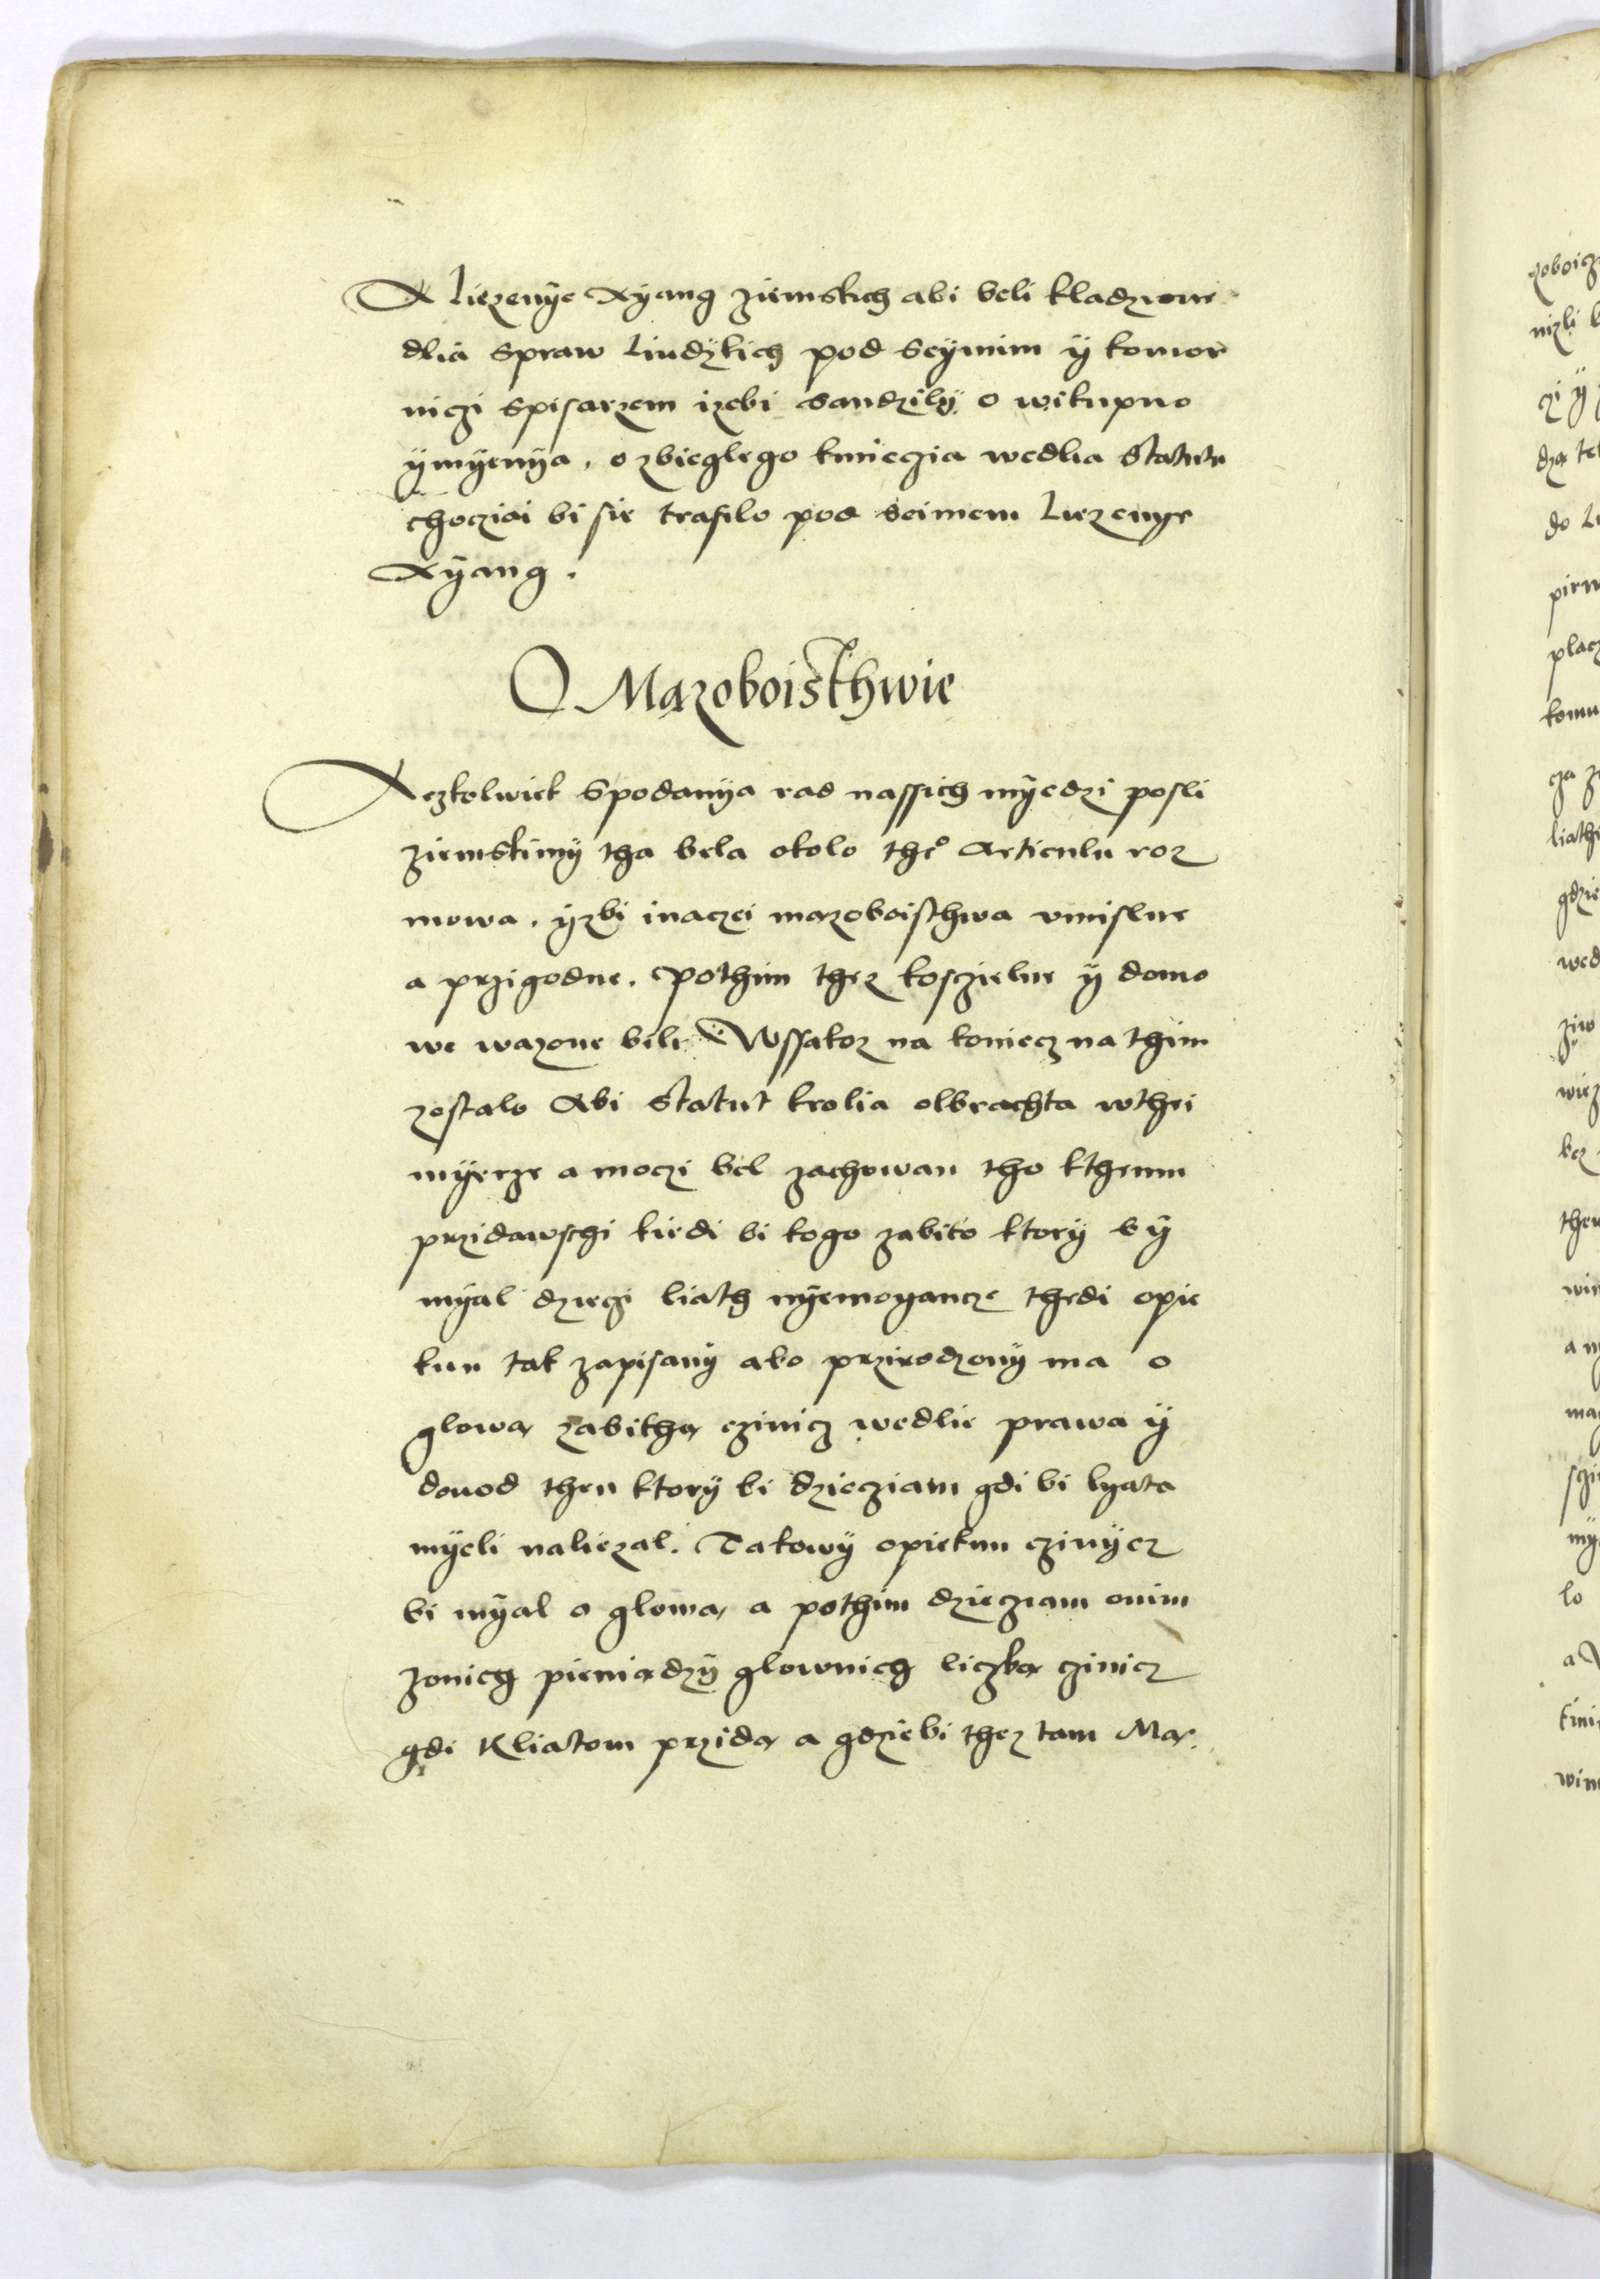 A liezenye Xyang ziemskich abi beli kladzione
dlia spraw liudzkich pod Seymim y komor
niczi spisarzem izebi sandzily o wikupno
ymyenya, o zbieglego kmieczia wedlia Statutu
choczjai bi sie trafilo pod seimem liezenye
Xyang.
O Mązoboisthwie
Aczkolwiek spodanya rad nassich myedzi posli
ziemskimy tha bela okolo theo Articulu roz
mowa, yzbi inaczei mazoboisthwa vmislne
a przigodne, pothim thez kosczielne y domo
we wazone beli Wssakoz na koniecz na thim
zostalo Abi Statut krolia olbrachta wthei
myerze a moczi bel zachowan tho kthemu
przidawschi kiedi bi kogo zabito ktory by
myal dzieczi liath nyemoyancze thedi opie
kun tak zapisany abo przirodzony ma o
glową zabithą czinicz wedlie prawa y
dowod then ktory bi dziecziam gdi bi lyata
myeli naliezal. Takowy opiekun czinycz
bi myal o glową a pothim dziecziam onim
zonich pieniądzy glownich liczbą czinicz
gdi kliatom przidą a gdziebi thez tam Mą
zoboicz
nizli
czi y
dzą
do
pirw
placz
komu
cza
liath
gdzie
wed
wiez
bez
then
win
a
mą
lo
a
win